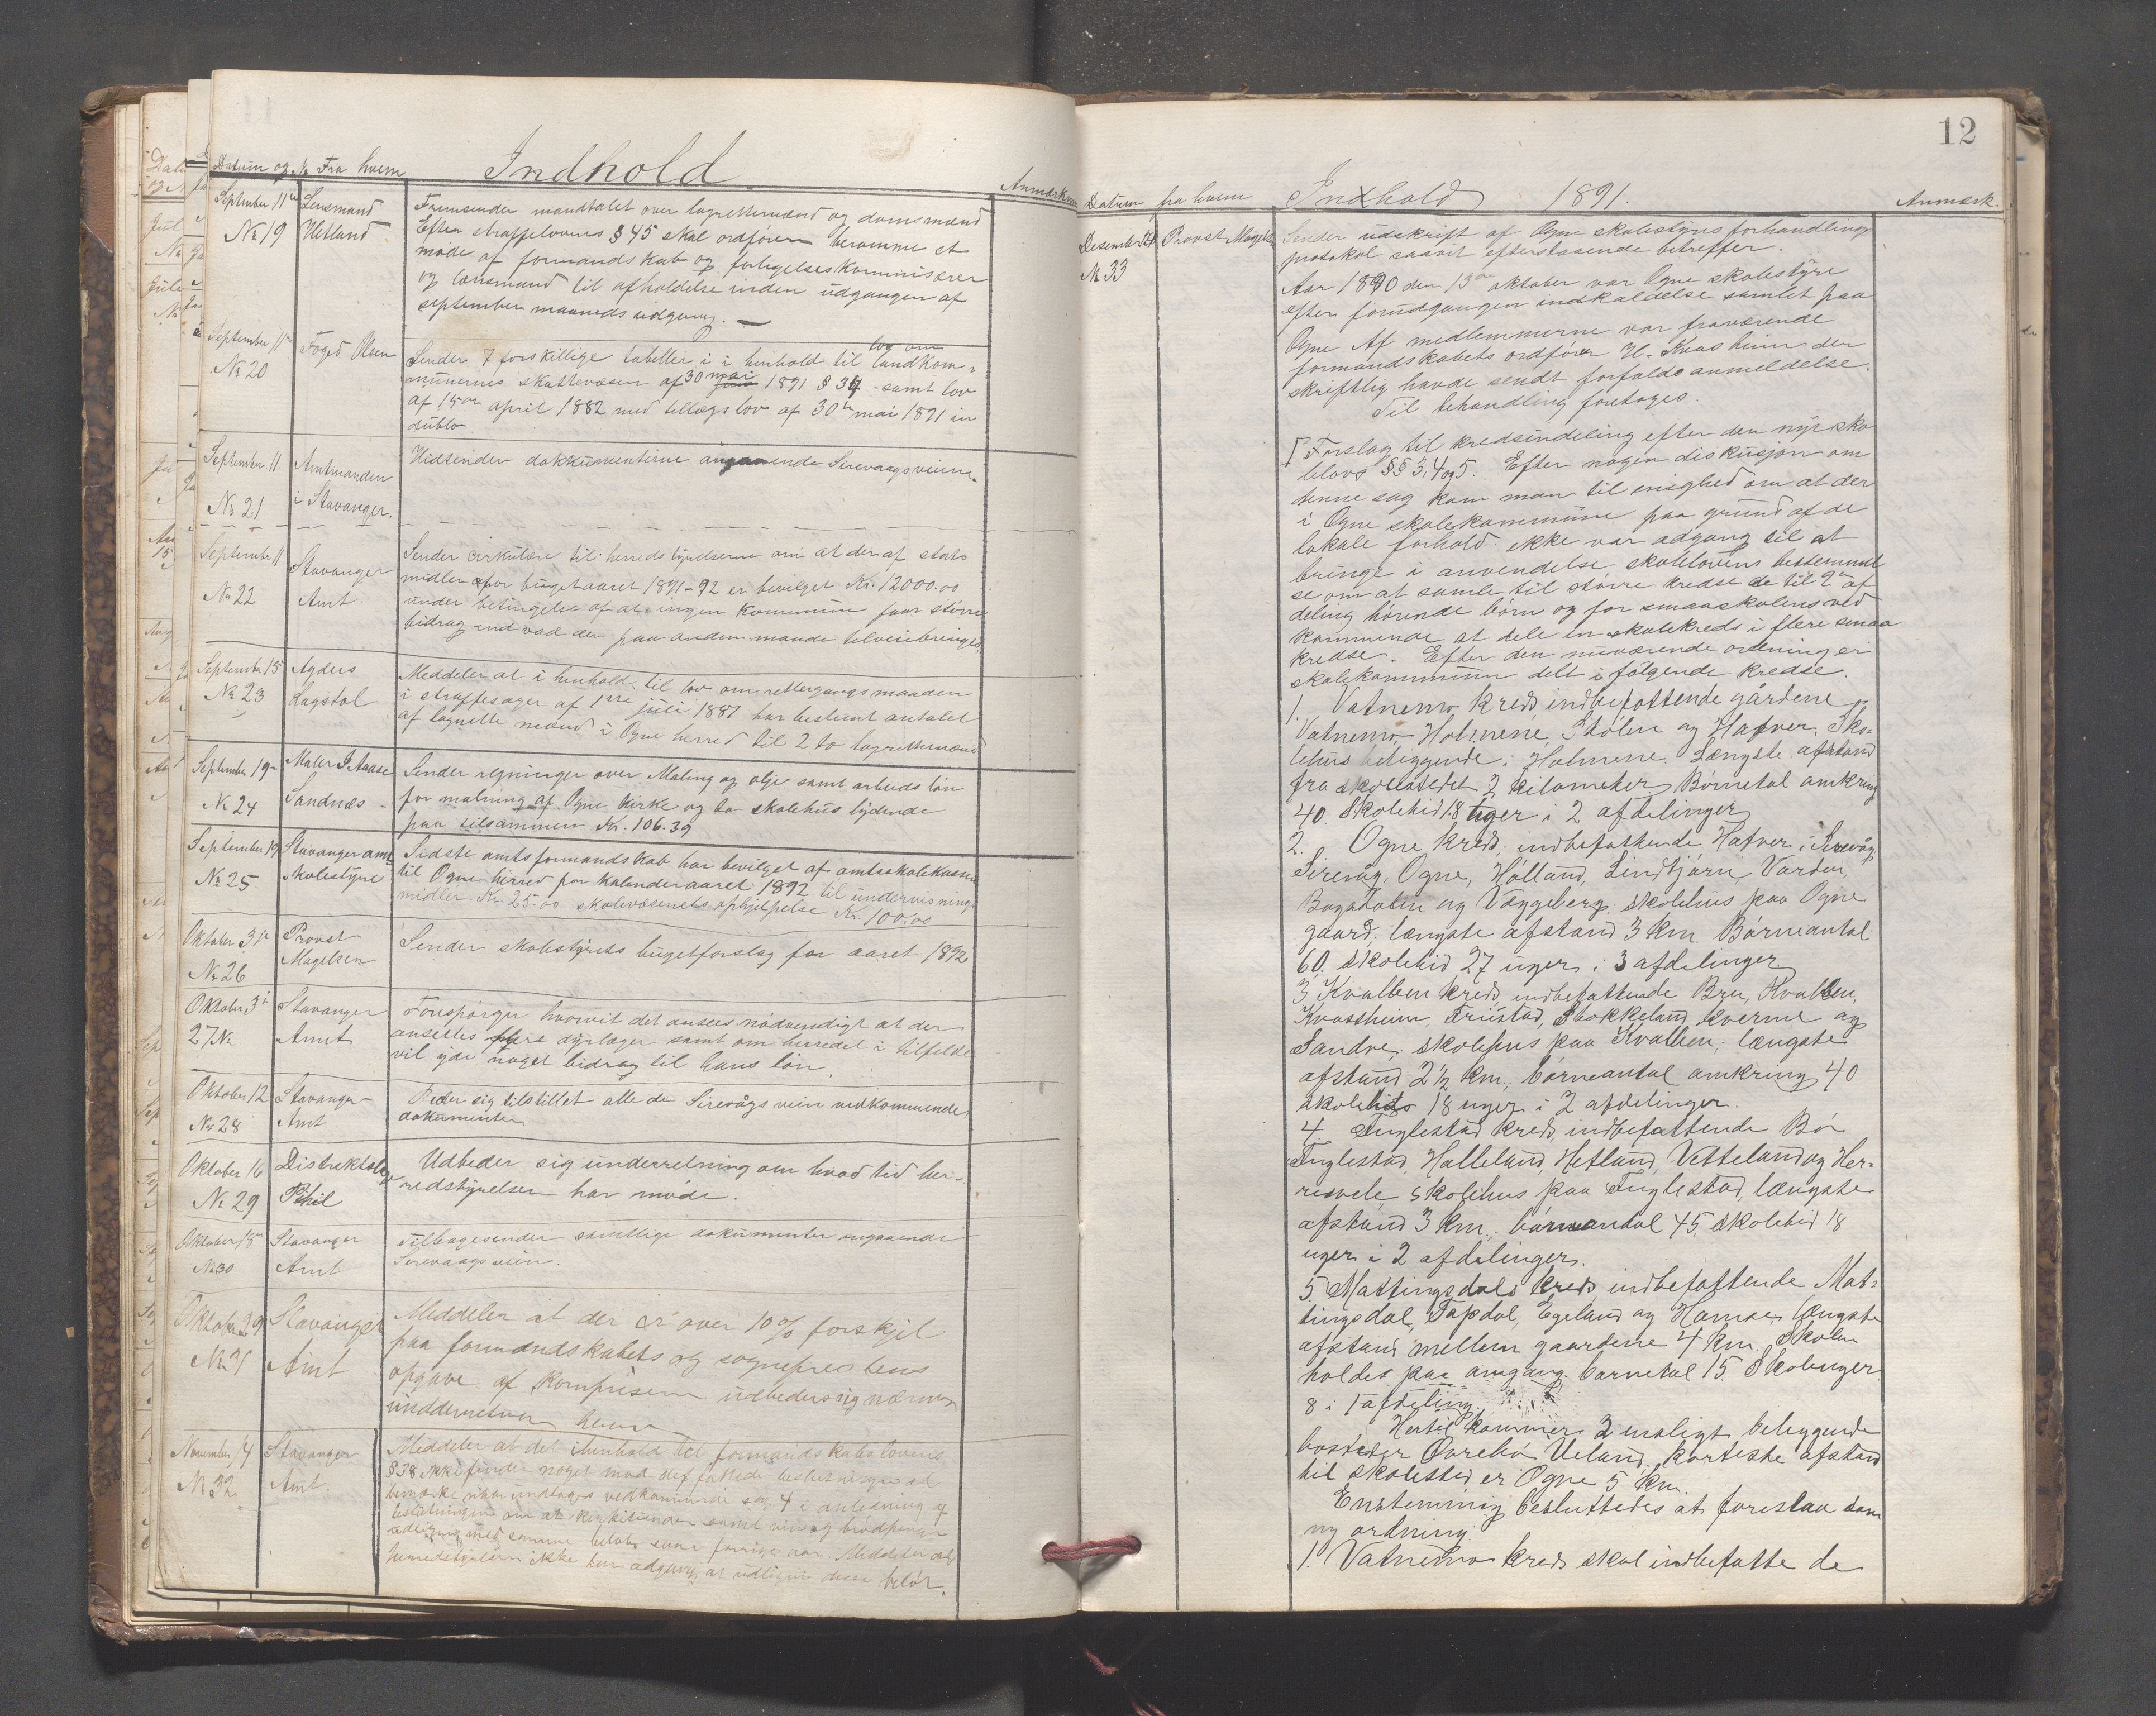 Datum og № Fra hvem Indhold Anmærkn
September 11te Lensmand Fremsender mandtalet over lagrettemænd og domsmænd
№ 19 Hetland Efter straffelovens § 45 skal ordføren beramme et
møde af formandskab og forligelseskommisærer
og lensmand til afholdelse inden udgangen af
september maaneds udgang. —
September 11te Foged Olsen Sender 7 forskillige tabeller i henhold til lov om landkom-
№ 20 munernes skattevæsen af 30 mai 1891 § 34 - samt lov
af 15de april 1882 med tillægslov af 30te mai 1891 in
dublo
September 11 Amtmanden Hidsender dokkumenterne angaaende Sirevaagsveien.
№ 21 i Stavanger.
September 11 Stavanger Sender cirkulære til herredstyrelserne om at der af stats
№ 22 Amt. midler for bugetaaret 1891-92 er bevilget Kr. 12000.00
under betingelse af at ingen kommune faar større
bidrag end vad der paa anden maade tilveiebringes.
September 15 Agders Meddeler at i henhold til lov om rettergangsmaaden
№ 23 Lagstol i straffesager af 1ste juli 1887 har bestemt antalet
af lagrette mænd i Ogne herred til 2 to lagrettemænd
September 19- Maler J. Aaase Sender regninger over Maling og olje samt arbeids løn
№ 24 Sandnæs for malning af Ogne kirke og to skolehus lydende
paa tilsammen Kr. 106.39
September 19 Stavanger amt Sidste amtsformandskab har bevilget af amtsskolekassen
№ 25 skolestyre til Ogne herred for kalenderaaret 1892 til undervisnings
midler Kr. 25.00 skolevæsenets ophjelpelse Kr. 100.00
Oktober 3die Provst Sender skolestyrets bugetforslag for aaret 1892
№ 26 Magelsen
Oktober 3die Stavanger Forespørger hvorvit det ansees nødvendigt at der
27 № Amt ansettes flere dyrlæger samt om herredet i tilfelde
vil yde noget bidrag til hans løn.
Oktober 12 Stavanger Beder sig tilstillet alle de Sirevågs veien vedkommende
№ 28 Amt dokumenter
Oktober 16 Distriktslæge Udbeder sig underretning om hvad tid her-
№ 29 Pihl redstyrelsen har møde.
Oktober 15 Stavanger Tilbagesender samtlige dokumenter angaaende
№ 30 Amt Sirevaagsveien.
Oktober 29 Stavanger Meddeler at der er over 10% forskjel
№ 31 Amt paa formandskabets og sogneprestens
opgave af kornprisern udbeder sig nærmere
underretning herom
November 4 Stavanger Meddeler at det i henhold til formandskabslovens
№ 32 Amt. § 38 ikke finder noget mod de fattede beslutninger at
bemærke naar undtages vedkommende sag 4 i anledning af
beslutningen om at
udligning med samme beløb som forrige aar. Meddeler at
herredstyrelsen ikke har adgang at udligne disse beløb.
12
Datum fra hvem Indhold 1891. Anmærk.
Desember 21 Provst Magelsen Sender udskrift af Ogne skolestyres forhandlings
№ 33 protokol saavit efterstaaende betreffer.
Aar 1890 den 13de oktober var Ogne skolestyre
efter forudgangen indkaldelse samlet paa
Ogne Af medlemmerne var fraværende
formandskabets ordfører H. Kvasheim der
skriftlig havde sendt forfaldsanmeldelse.
Til behandling foretoges.
I Forslag til kredsindeling efter den nye sko
lelovs §§ 3, 4 og 5. Efter nogen diskusjon om
denne sag kom man til enighed om at der
i Ogne skolekommune paa grund af de
lokale forhold ikke var adgang til at
bringe i anvendelse skolelovens bestemmel
se om at samle til større kredse de til 2den af
deling hørende børn og for smaaskolens ved
kommende at dele en skolekreds i flere smaa
kredse. Efter den nuværende ordening er
skolekommunen delt i følgende kredse.
1. Vatnemo kreds indbefattende gårdene
Vatnemo, Holmene, Stølen og Hafver, Sko-
lehus beliggende i Holmene. Længste afstand
fra skolestedet 2 kilometer Børnetal omkring
40. Skoletid 18 uger i 2 afdelinger
2. Ogne kreds, indbefattende Hafver i Sirevåg
Sirevåg, Ogne, Hålland, Lindtjørn, Varden,
Bogadalen og Væggeberg. Skolehus paa Ogne
gaard. længste afstand 3 km. Børneantal
60. Skoletid 27 uger i 3 afdelinger
3 Kvalbein kreds indbefattende Bru, Kvalben,
Kvassheim, Friestad, Stokkeland, Kverme og
Sandve. skolehus paa Kvalben, længste
afstand 2½ km, børneantal omkring 40
skoletid 18 uger i 2 afdelinger.
4. Fuglestad kreds indbefattende Bør
Fuglestad, Halleland, Hetland, Vetteland og Her-
revele skolehus paa Fuglestad, længste
afstand 3 km. børneantal 45, skoletid 18
uger i 2 afdelinger.
5. Mattingsdals kreds indbefattende Mat-
tingsdal, Tapdal, Egeland og Hamse længste
afstand mellem gaardene 4 km. Skolen
holdes paa omgang. børnetal 15 Skoleuger
8 i 1 afdeling.
Hertil kommer 2 ensligt beliggende
bosteder Øvrebø Ueland. korteste afstand
til skolested er Ogne 5 km.
Enstemmig besluttedes at foreslaa som
ny ordning.
1. Vatnemo kreds skal indbefatte de